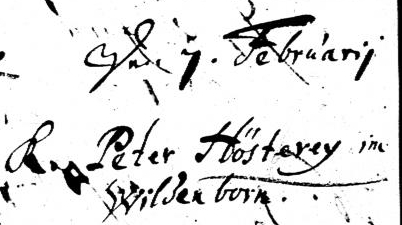 Den 7. Februarij
Peter Hösterey im
Wildenborn.